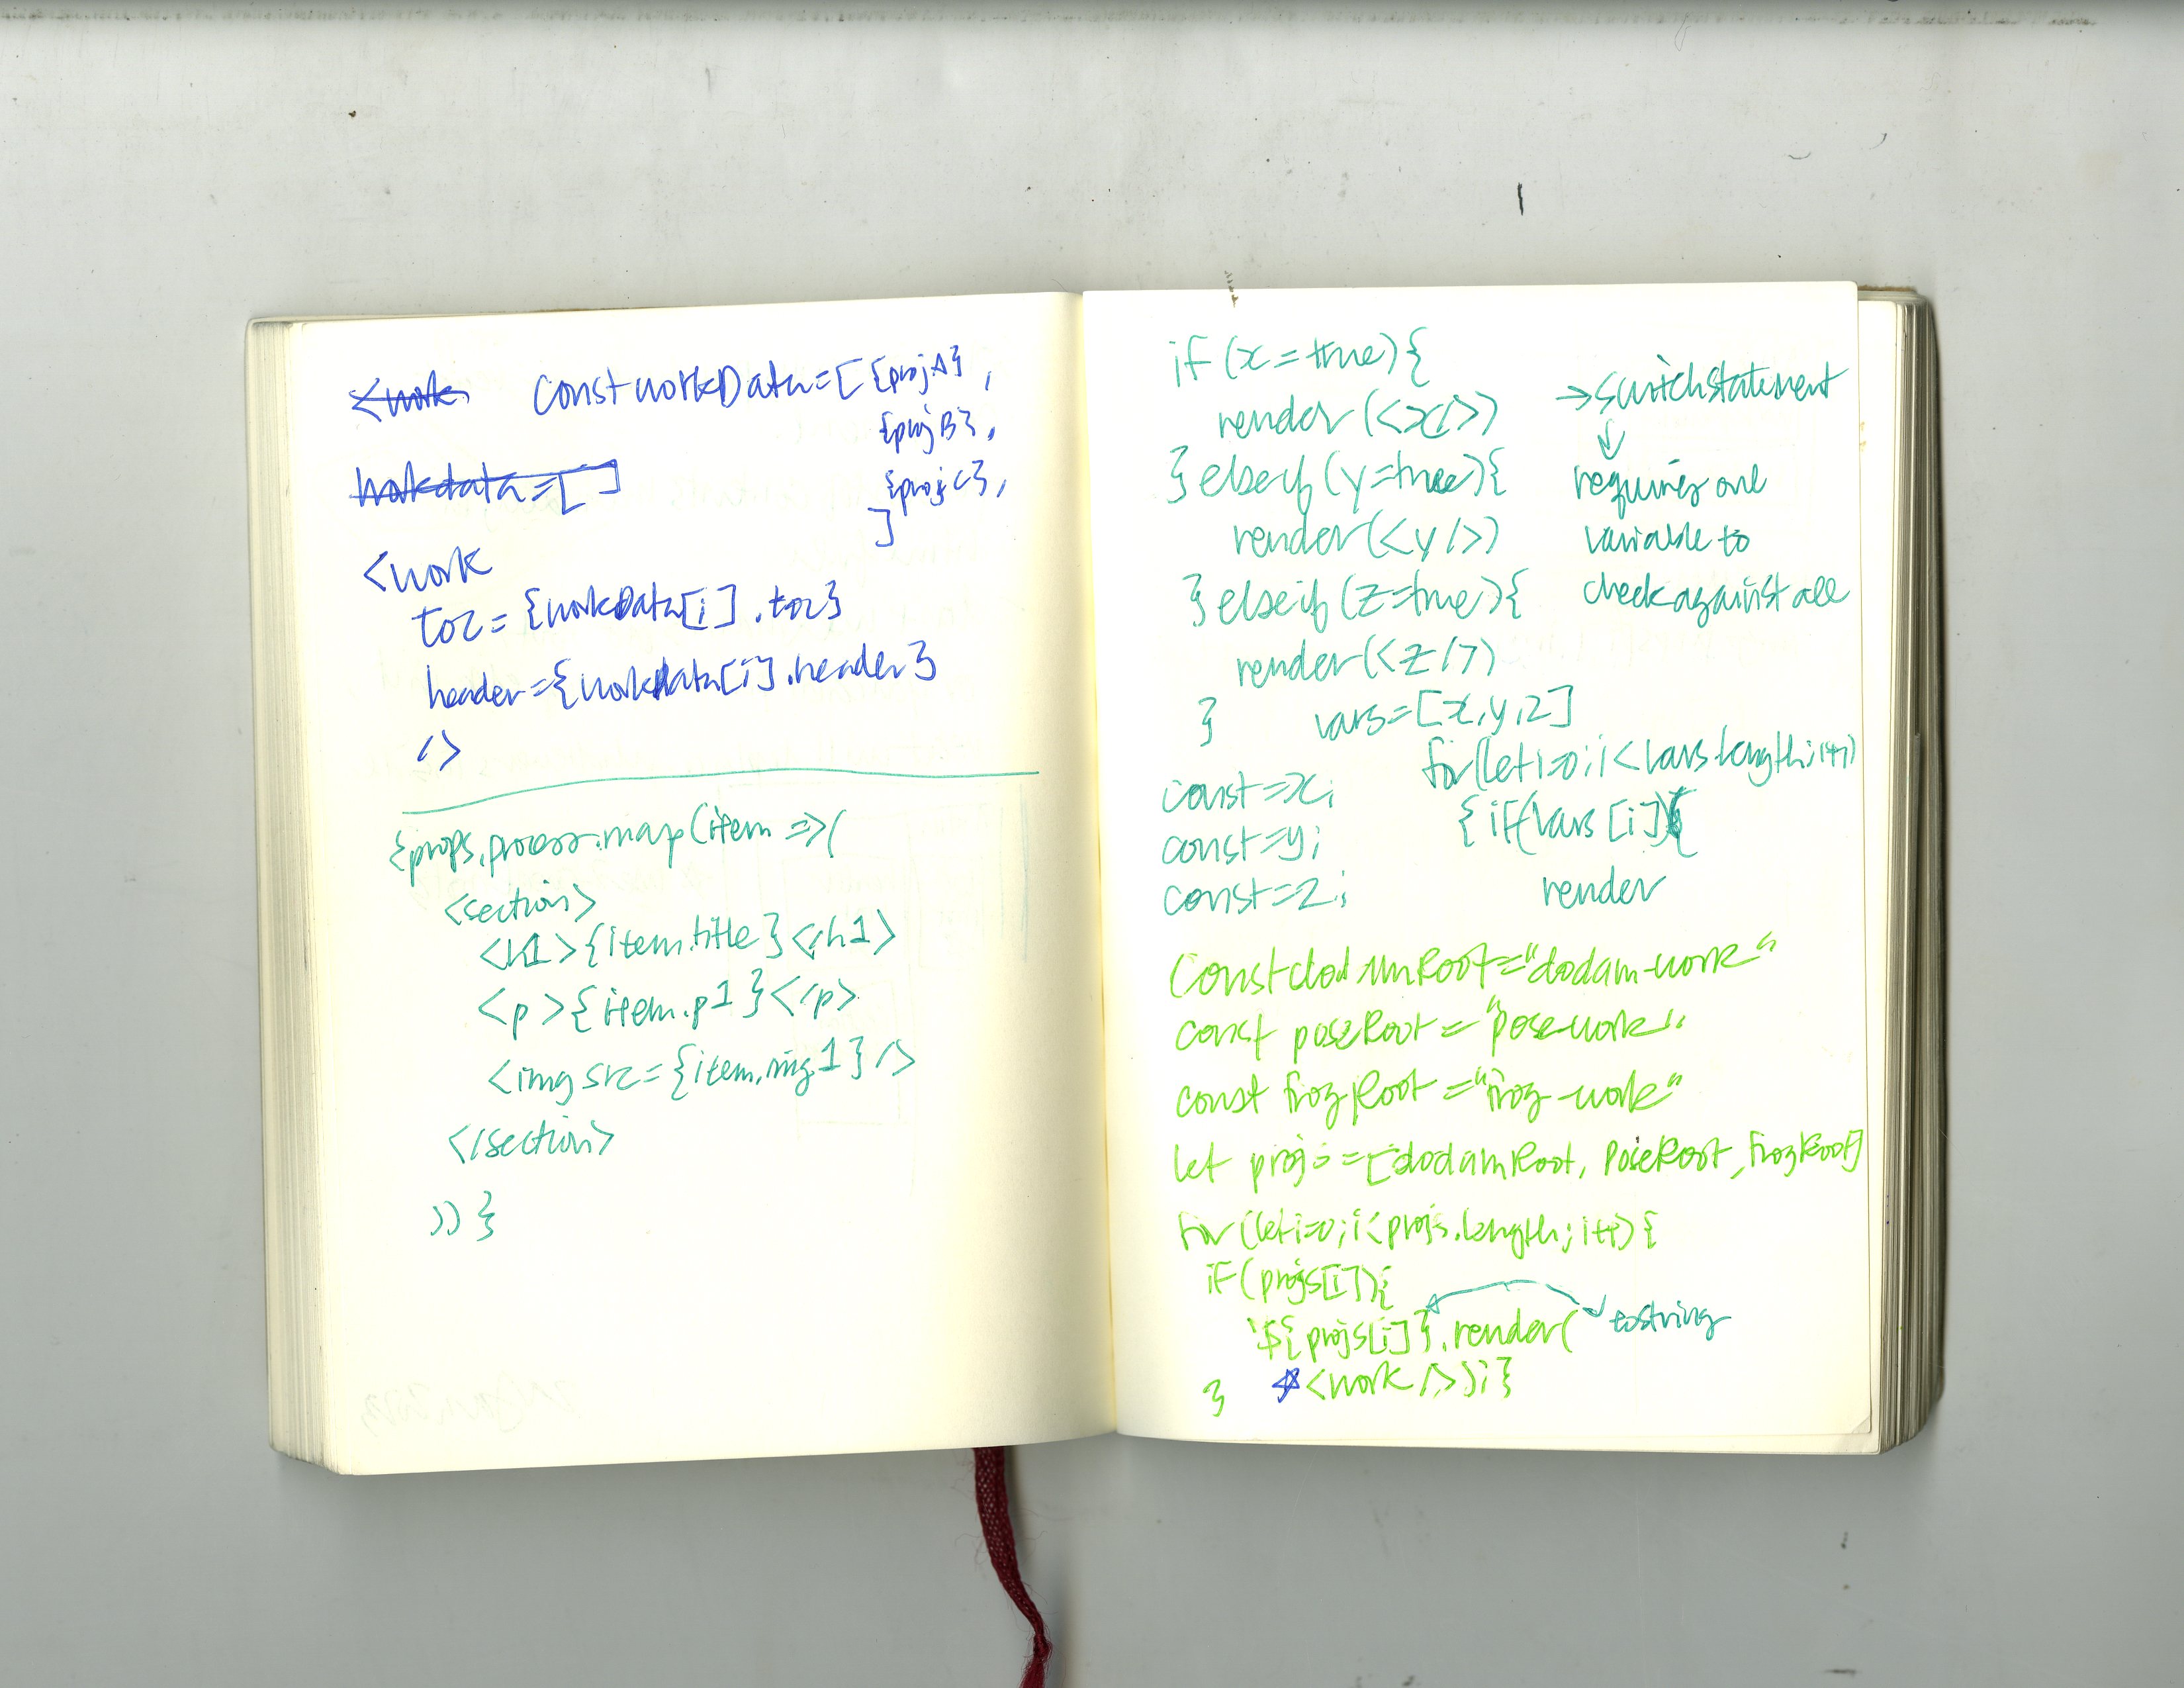 <work const workData=[{projA},
{projB},
workdata=[]
{projC},
]
<work
toc={workData[i].toc}
header={workData[i].header}
/>
{props.process.map(item =>(
<section>
<h1>{item.title}</h1>
<p>{item.p1}</p>
<img src={item.img1}/>
</section>
))}
if(x=true){
render(<x/>)
}elseif(y=true){
render(<y/>)
}elseif(z=true){
render(<z/>)
}
→switch statement
requires one
variable to
check against all
vars=[x,y,z]
for(let i=0;i<vars.length;i++)
{if(vars[i]){
render
const=x;
const=y;
const=z;
const dodamRoot="dodam-work"
const poseRoot="pose-work"
const frogRoot="frog-work"
let projs=[dodamRoot, poseRoot, frogRoot]
for(let i=0;i<projs.length;i++){
if(projs[i]){
`${projs[i]}.render( tostring
<work/>);}
}